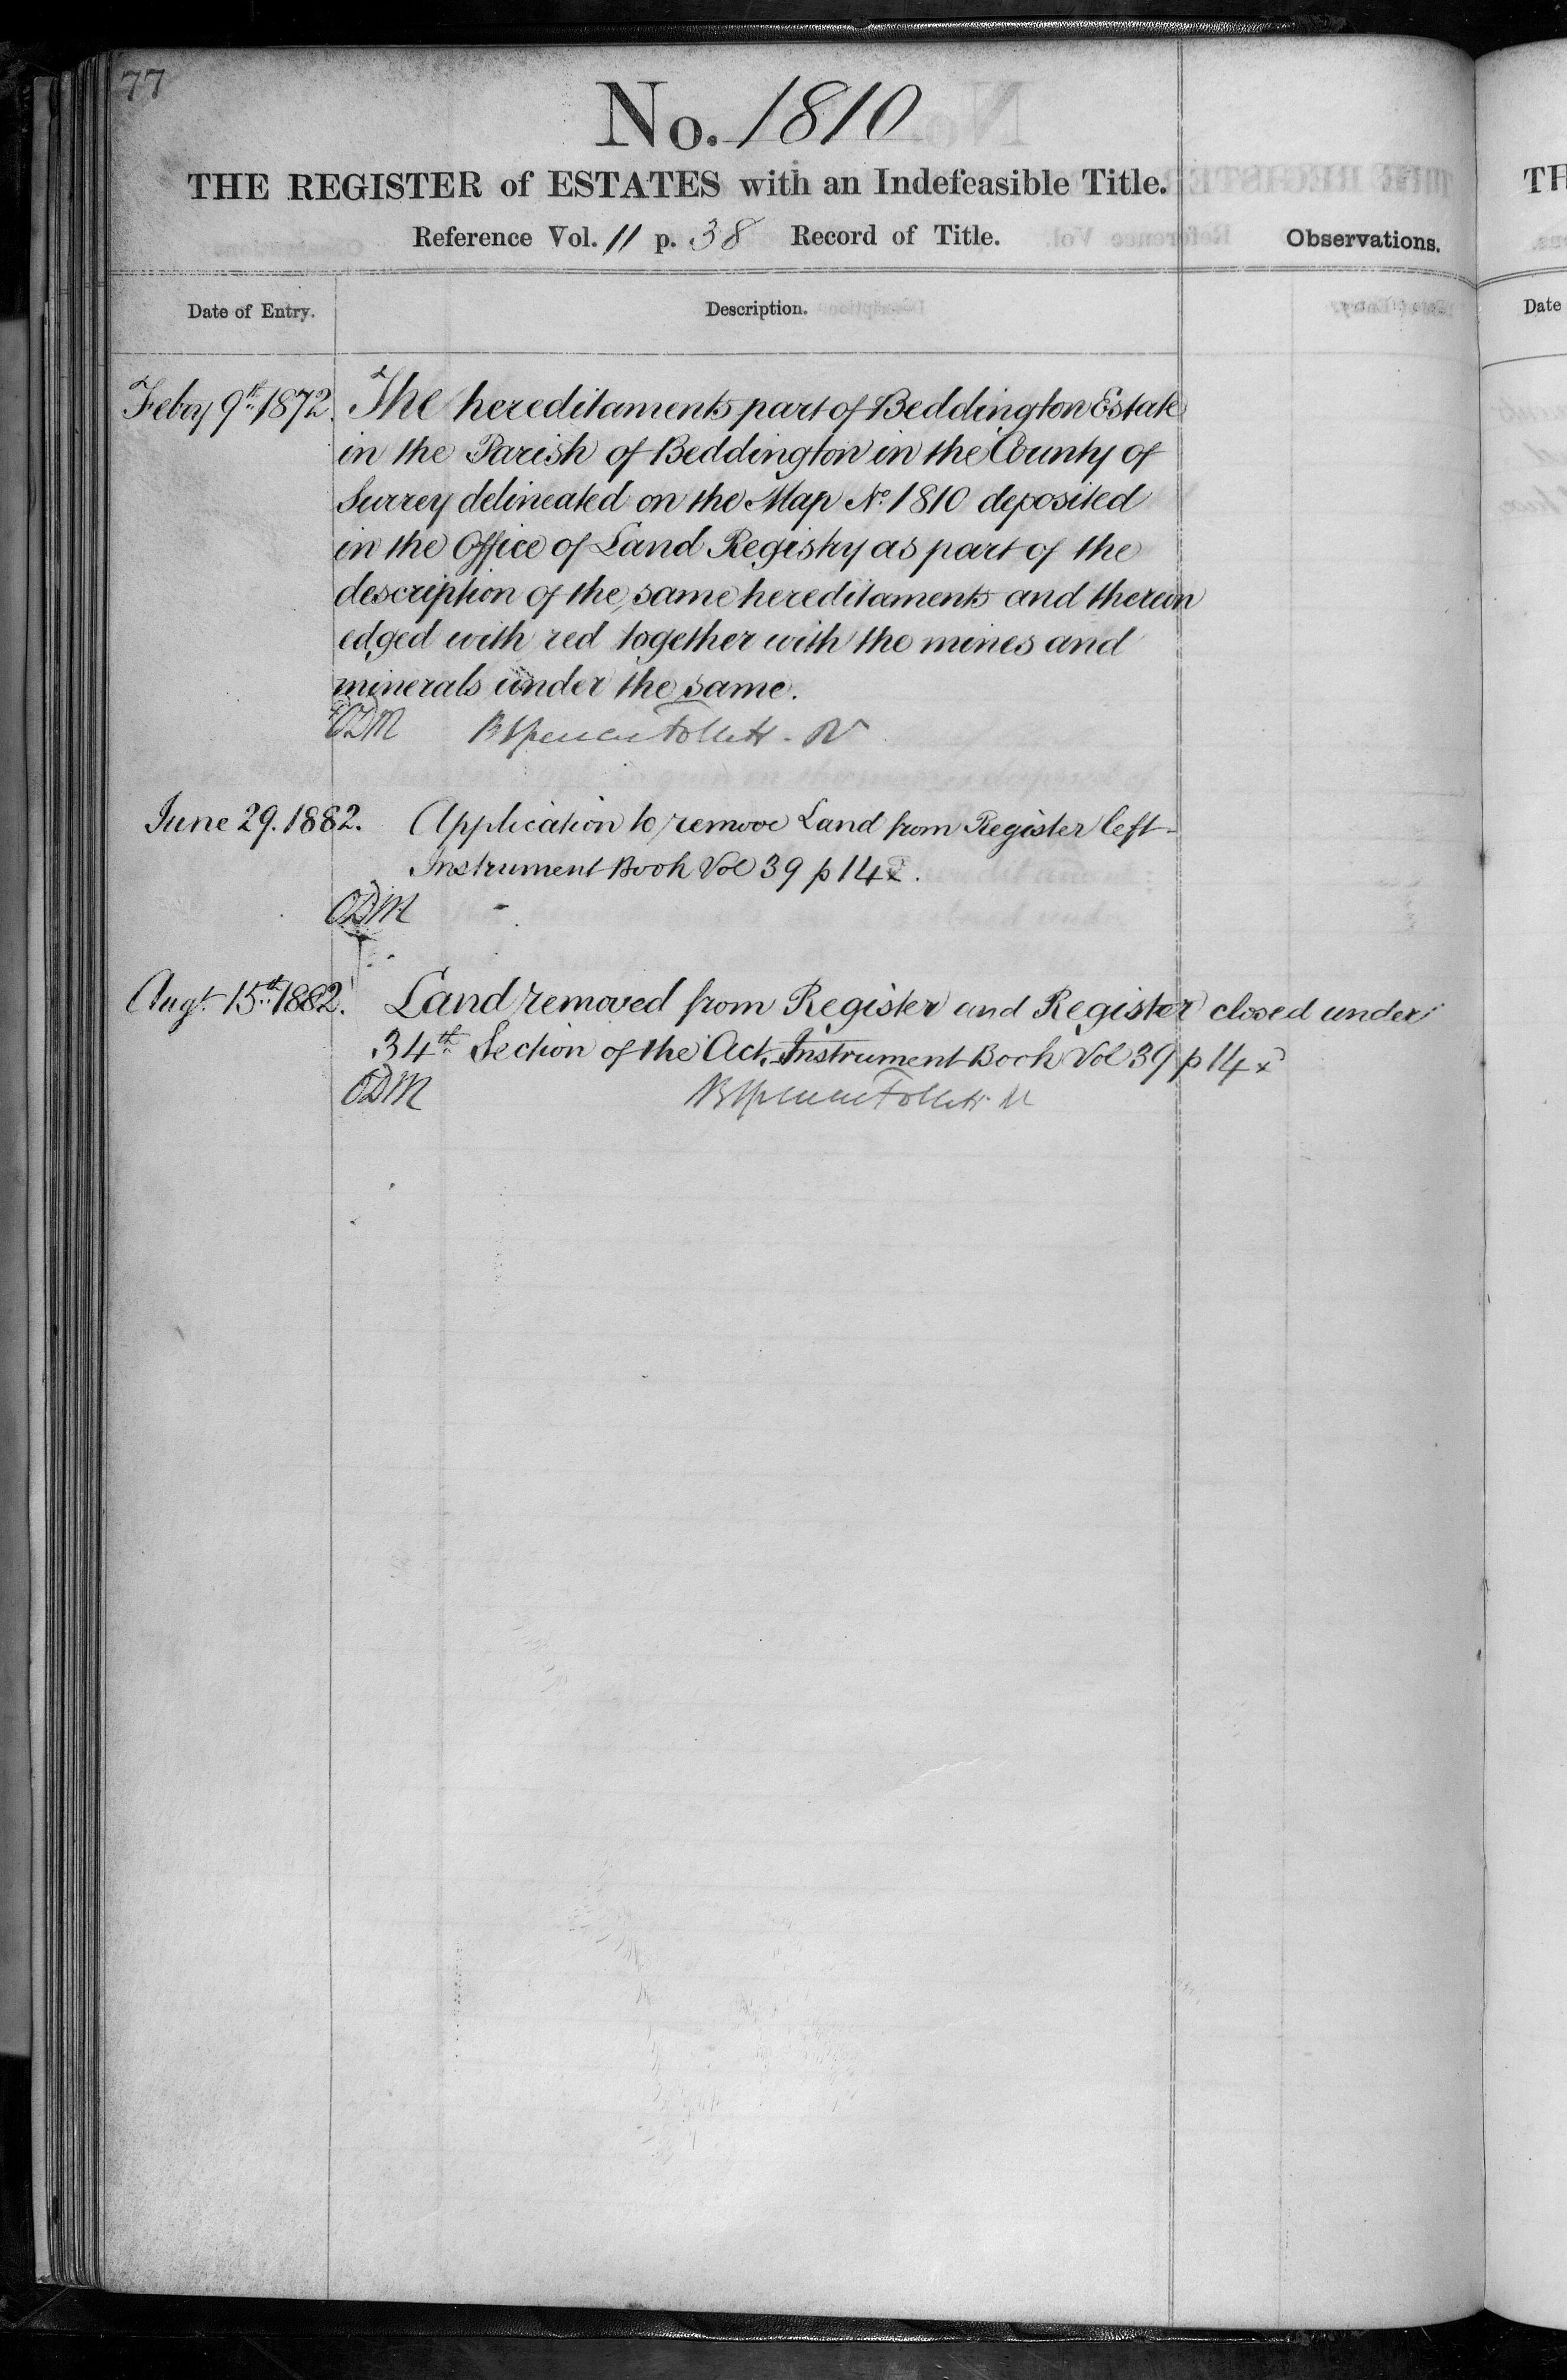 77
No. 1810
THE REGISTER of ESTATES with an Indefeasible Title.
Reference Vol. 11 p. 38 Record of Title.
Observations.
Date of Entry.
Description.
Feby 9th 1872. The hereditaments part of Beddington Estate
in the Parish of Beddington in the County of
Surrey delineated on the Map No. 1810 deposited
in the Office of Land Registry as part of the
description of the same hereditaments and therein
edged with red together with the mines and
minerals under the same.
ODM B Spencer Follett - R
June 29. 1882. Application to remove Land from Register left -
Instrument Book Vol 39 p 14
ODM
Augt. 15th 1882. Land removed from Register and Register closed under
34th Section of the Act. Instrument Book Vol 39 p 14
ODM B Spencer Follett R
TH
Date